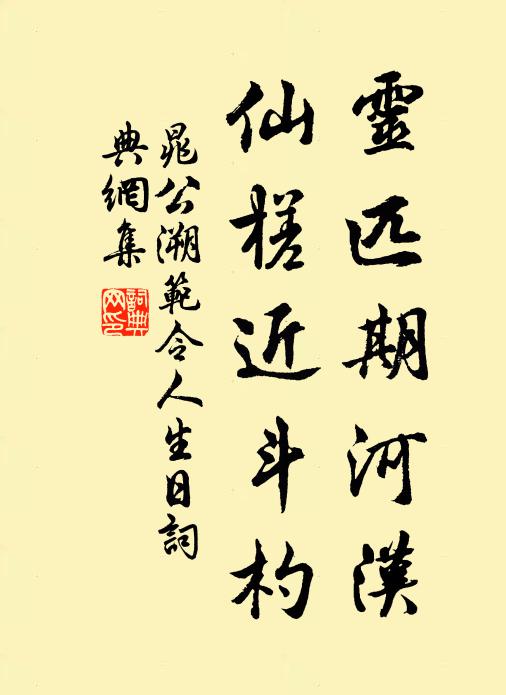 靈匹期河漢
仙槎近斗杓
晁公溯範令人生日詞
典網集
詞典網印